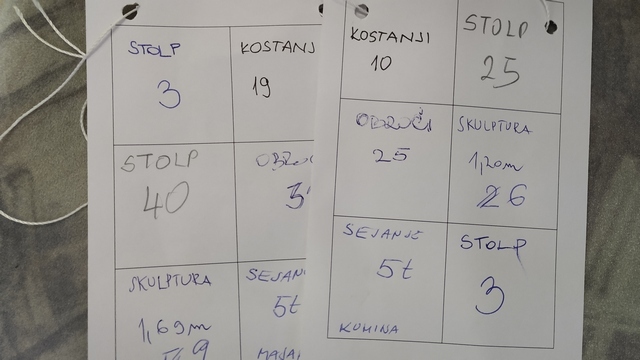 STOLP
3
KOSTANJ
19
STOLP
40
SKULPTURA
1,69m
SEJANJ
5t
KOSTANJI
10
STOLP
25
OBROČI
25
SKULPTURA
1,20m
26
SEJANJE
5t
KUHINA
STOLP
3